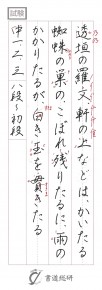 試験
透垣の羅文軒の上などは、かいたる
蜘蛛の巣の、こぼれ残りたるに、雨の
かかりたるが白き玉を貫きたる
中一、二、三 八段〜初段
書道総研